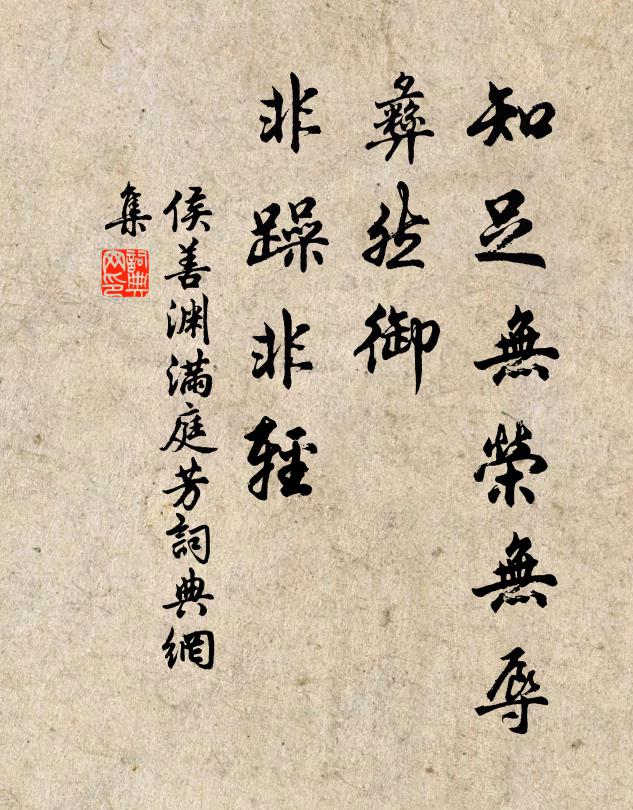 知足無榮無辱
彝然御
非躁非輕
侯善淵滿庭芳詞典網
集
詞典
网印